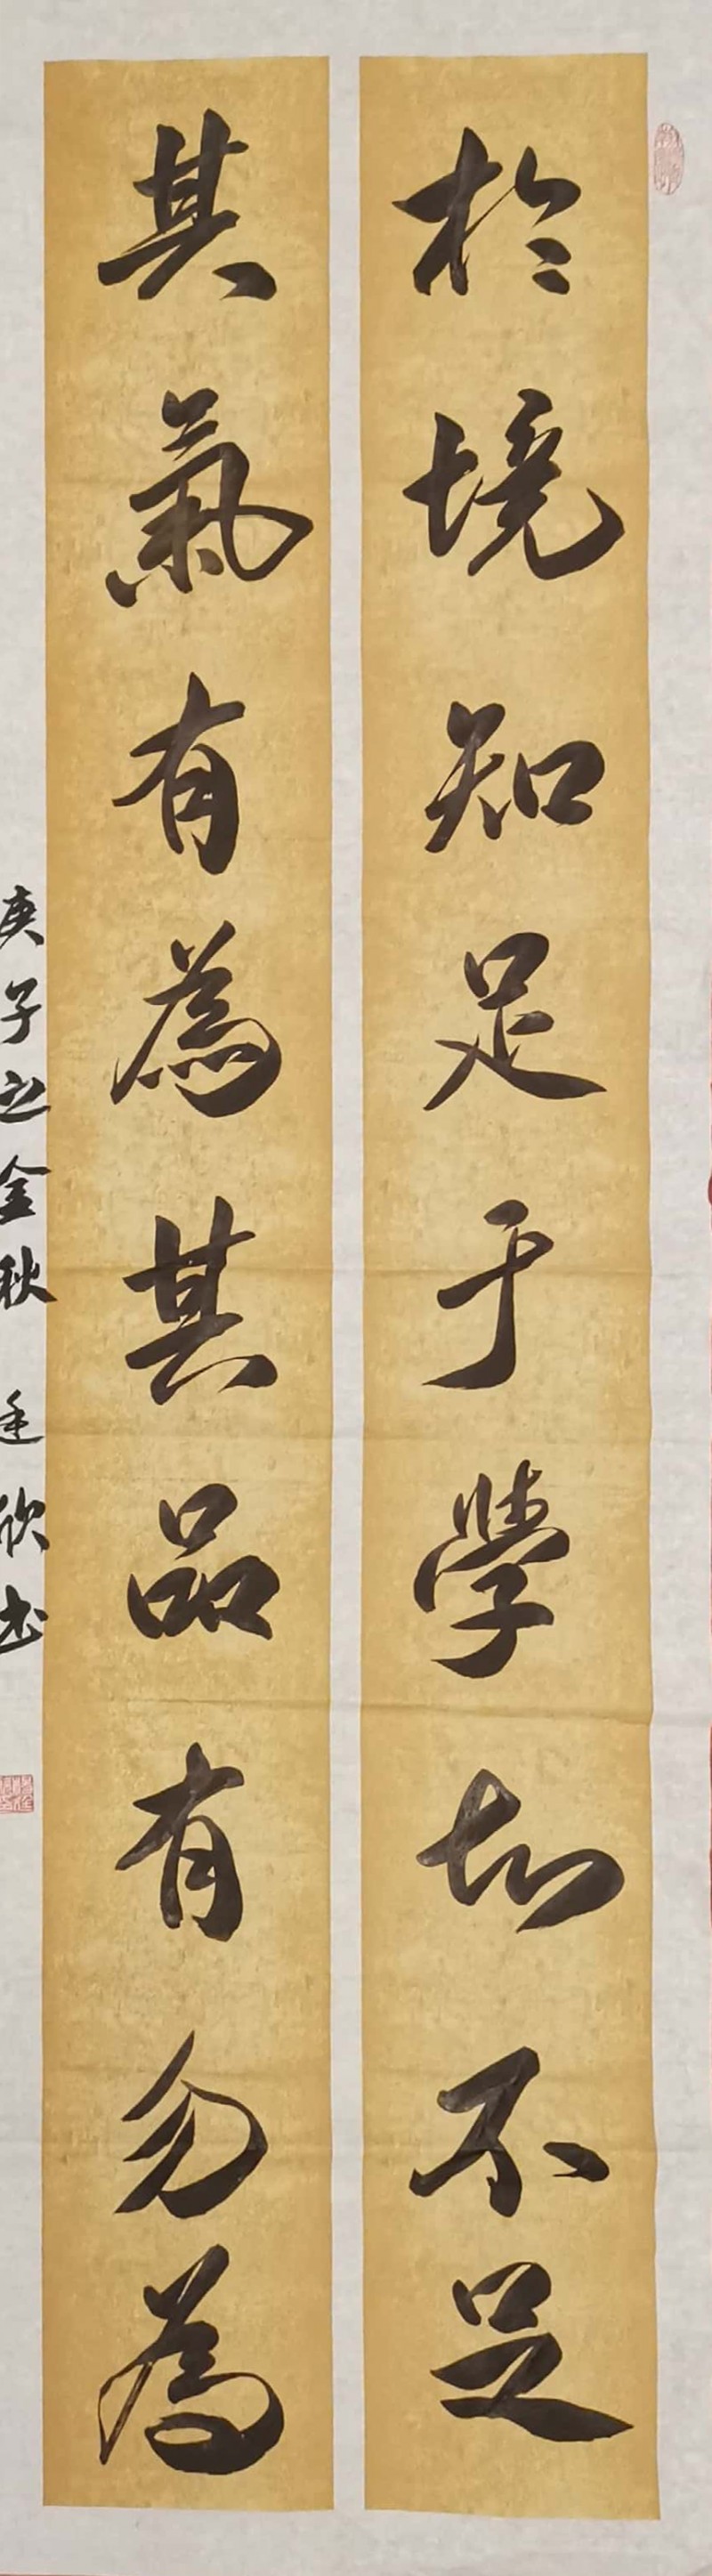 於境知足于學知不足
其氣有為其品有勿為
庚子之金秋 廷欣书